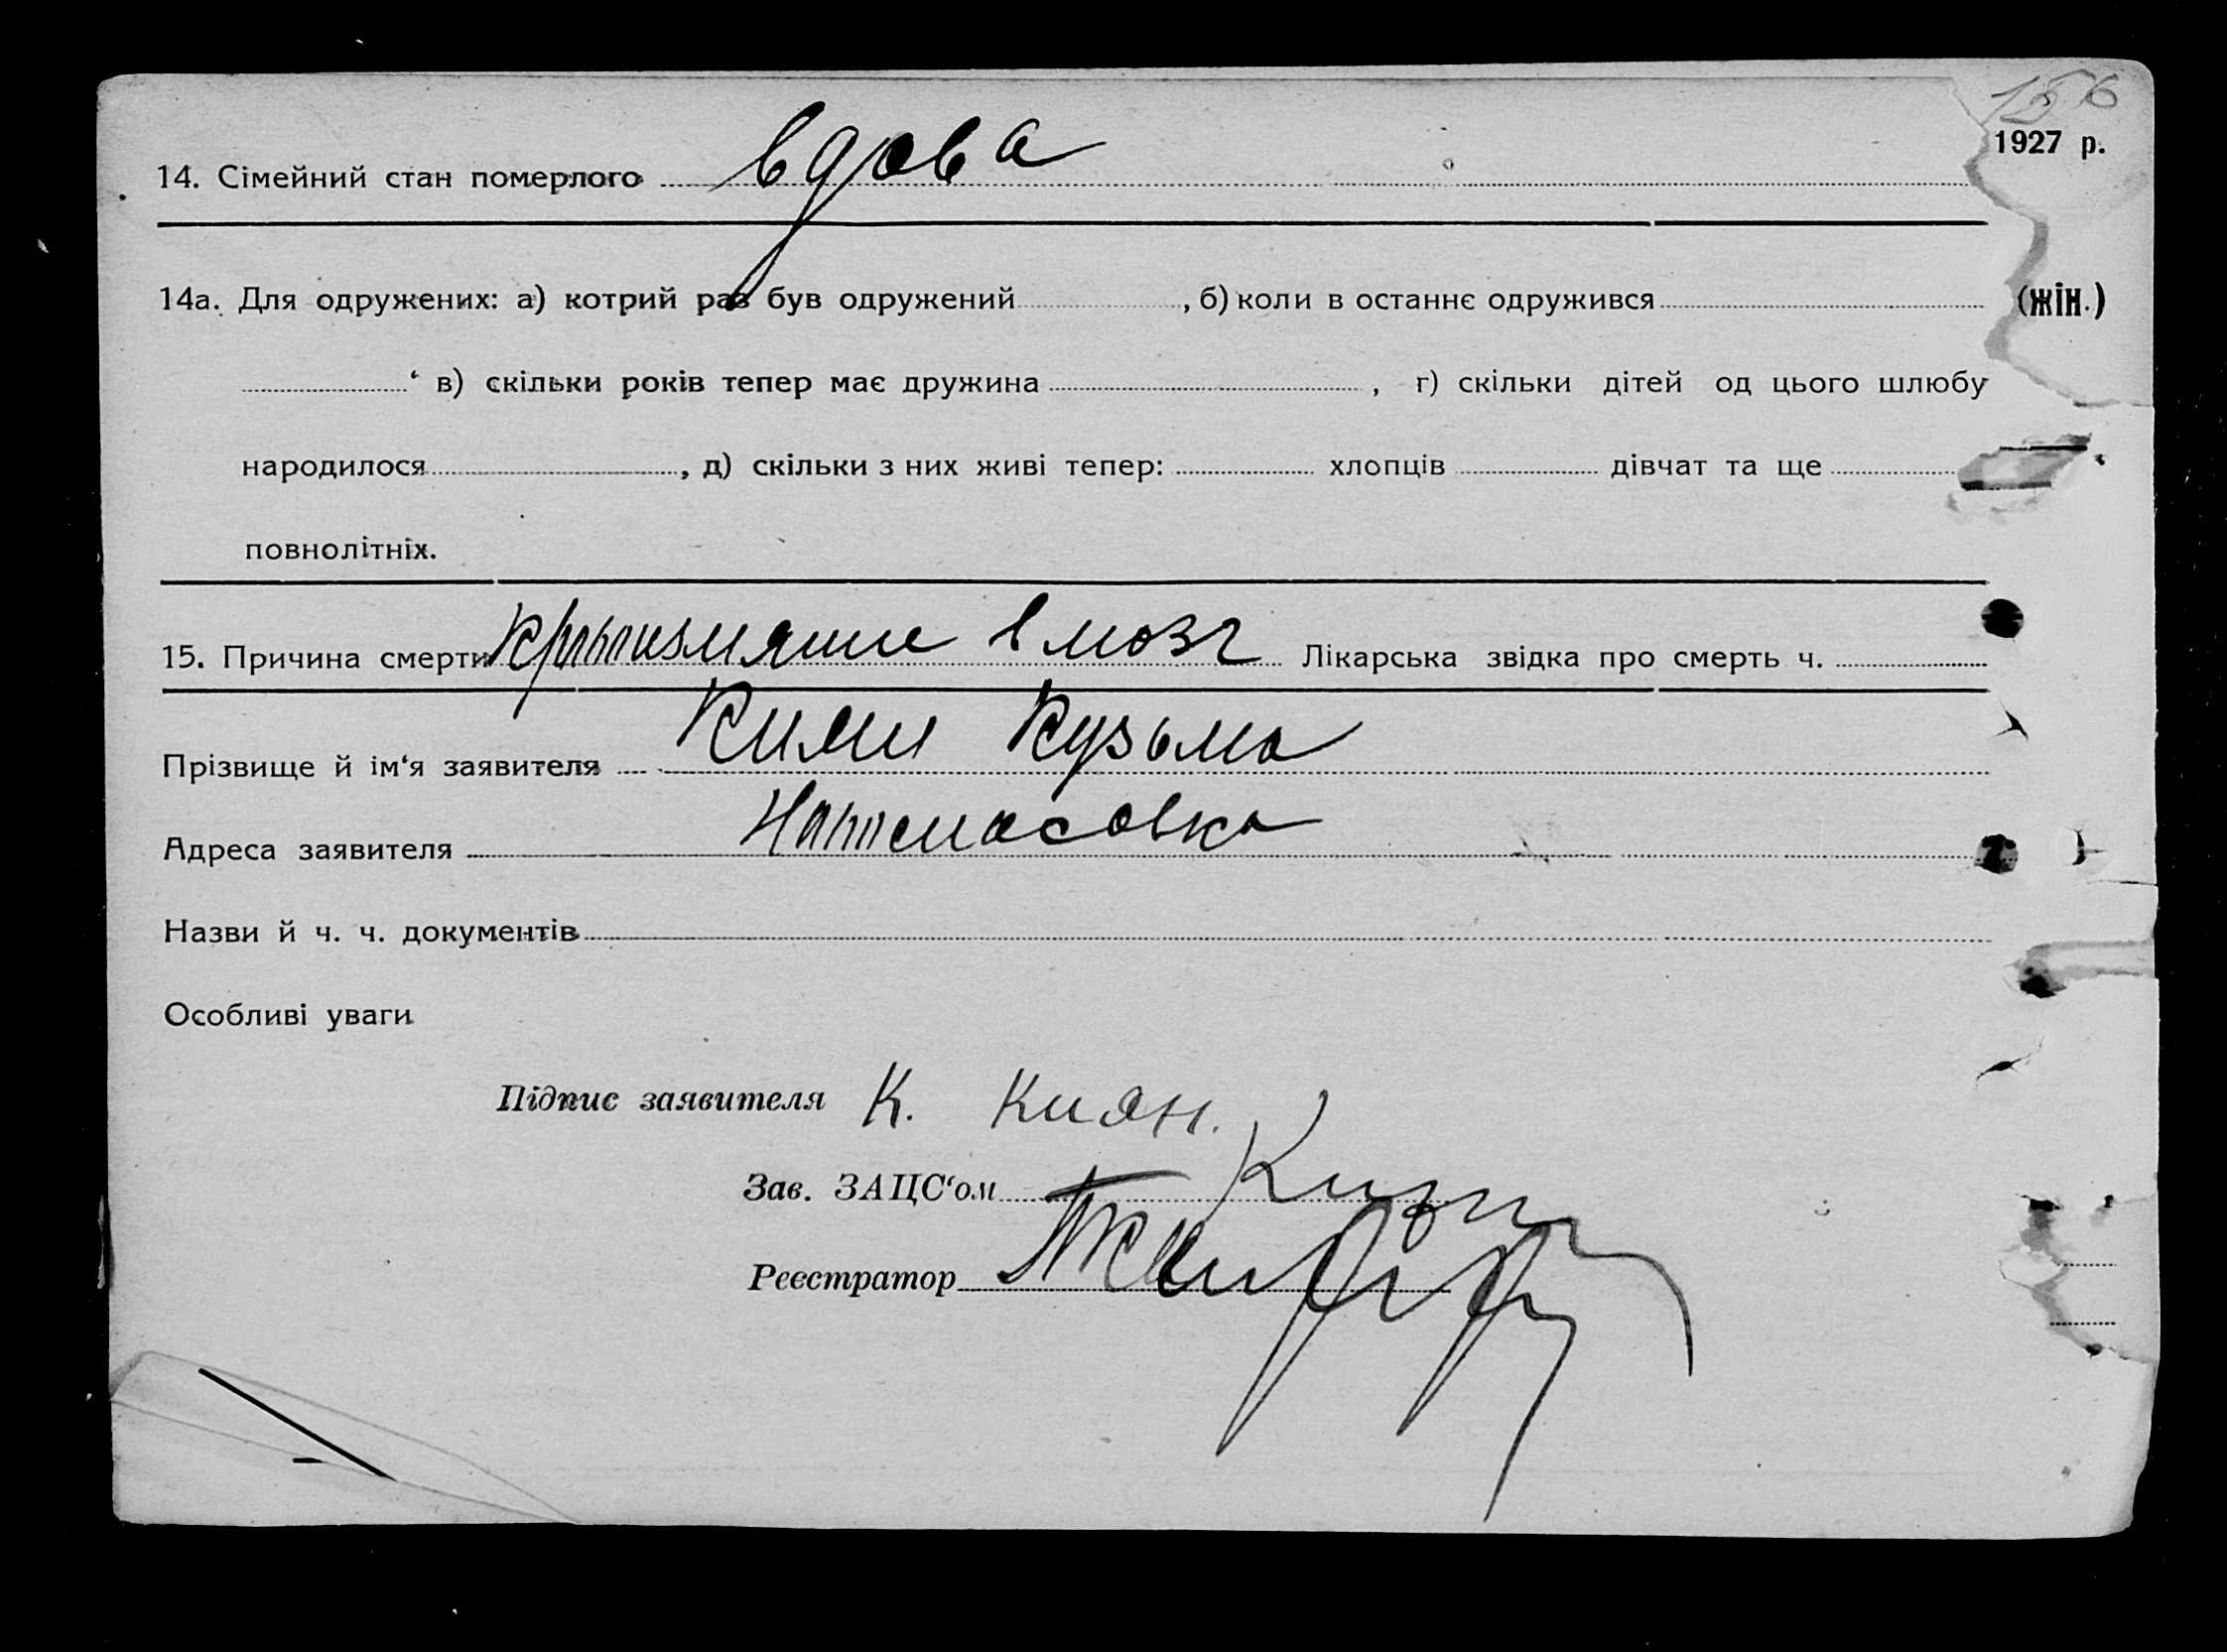 156
1927 р.
14. Сімейний стан померлого вдова
14а. Для одружених: а) котрий раз був одружений , б) коли в останнє одружився
(жін.)
в) скільки років тепер має дружина , г) скільки дітей од цього шлюбу
народилося , д) скільки з них живі тепер: хлопців дівчат та ще
повнолітніх.
15. Причина смерти в мозг Лікарська звідка про смерть ч.
Прізвище й ім‘я заявителя Киян Кузьма
Адреса заявителя
Назви й ч. ч. документів
Особливі уваги
Підпис заявителя К. Киян.
Зав. ЗАЦС‘ом
Реєстратор